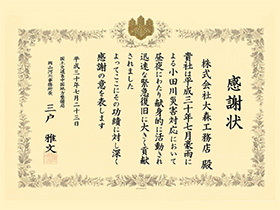 感謝状
株式会社大森工務店 殿
貴社は平成三十年七月豪雨に
よる小田川災害対応において
昼夜にわたり献身的に活動され
迅速な緊急復旧に大きく貢献
されました
よってここにその功績に対し深く
感謝の意を表します
平成三十年七月二十三日
国土交通省中国地方整備局
岡山河川事務所長
三戸 雅文